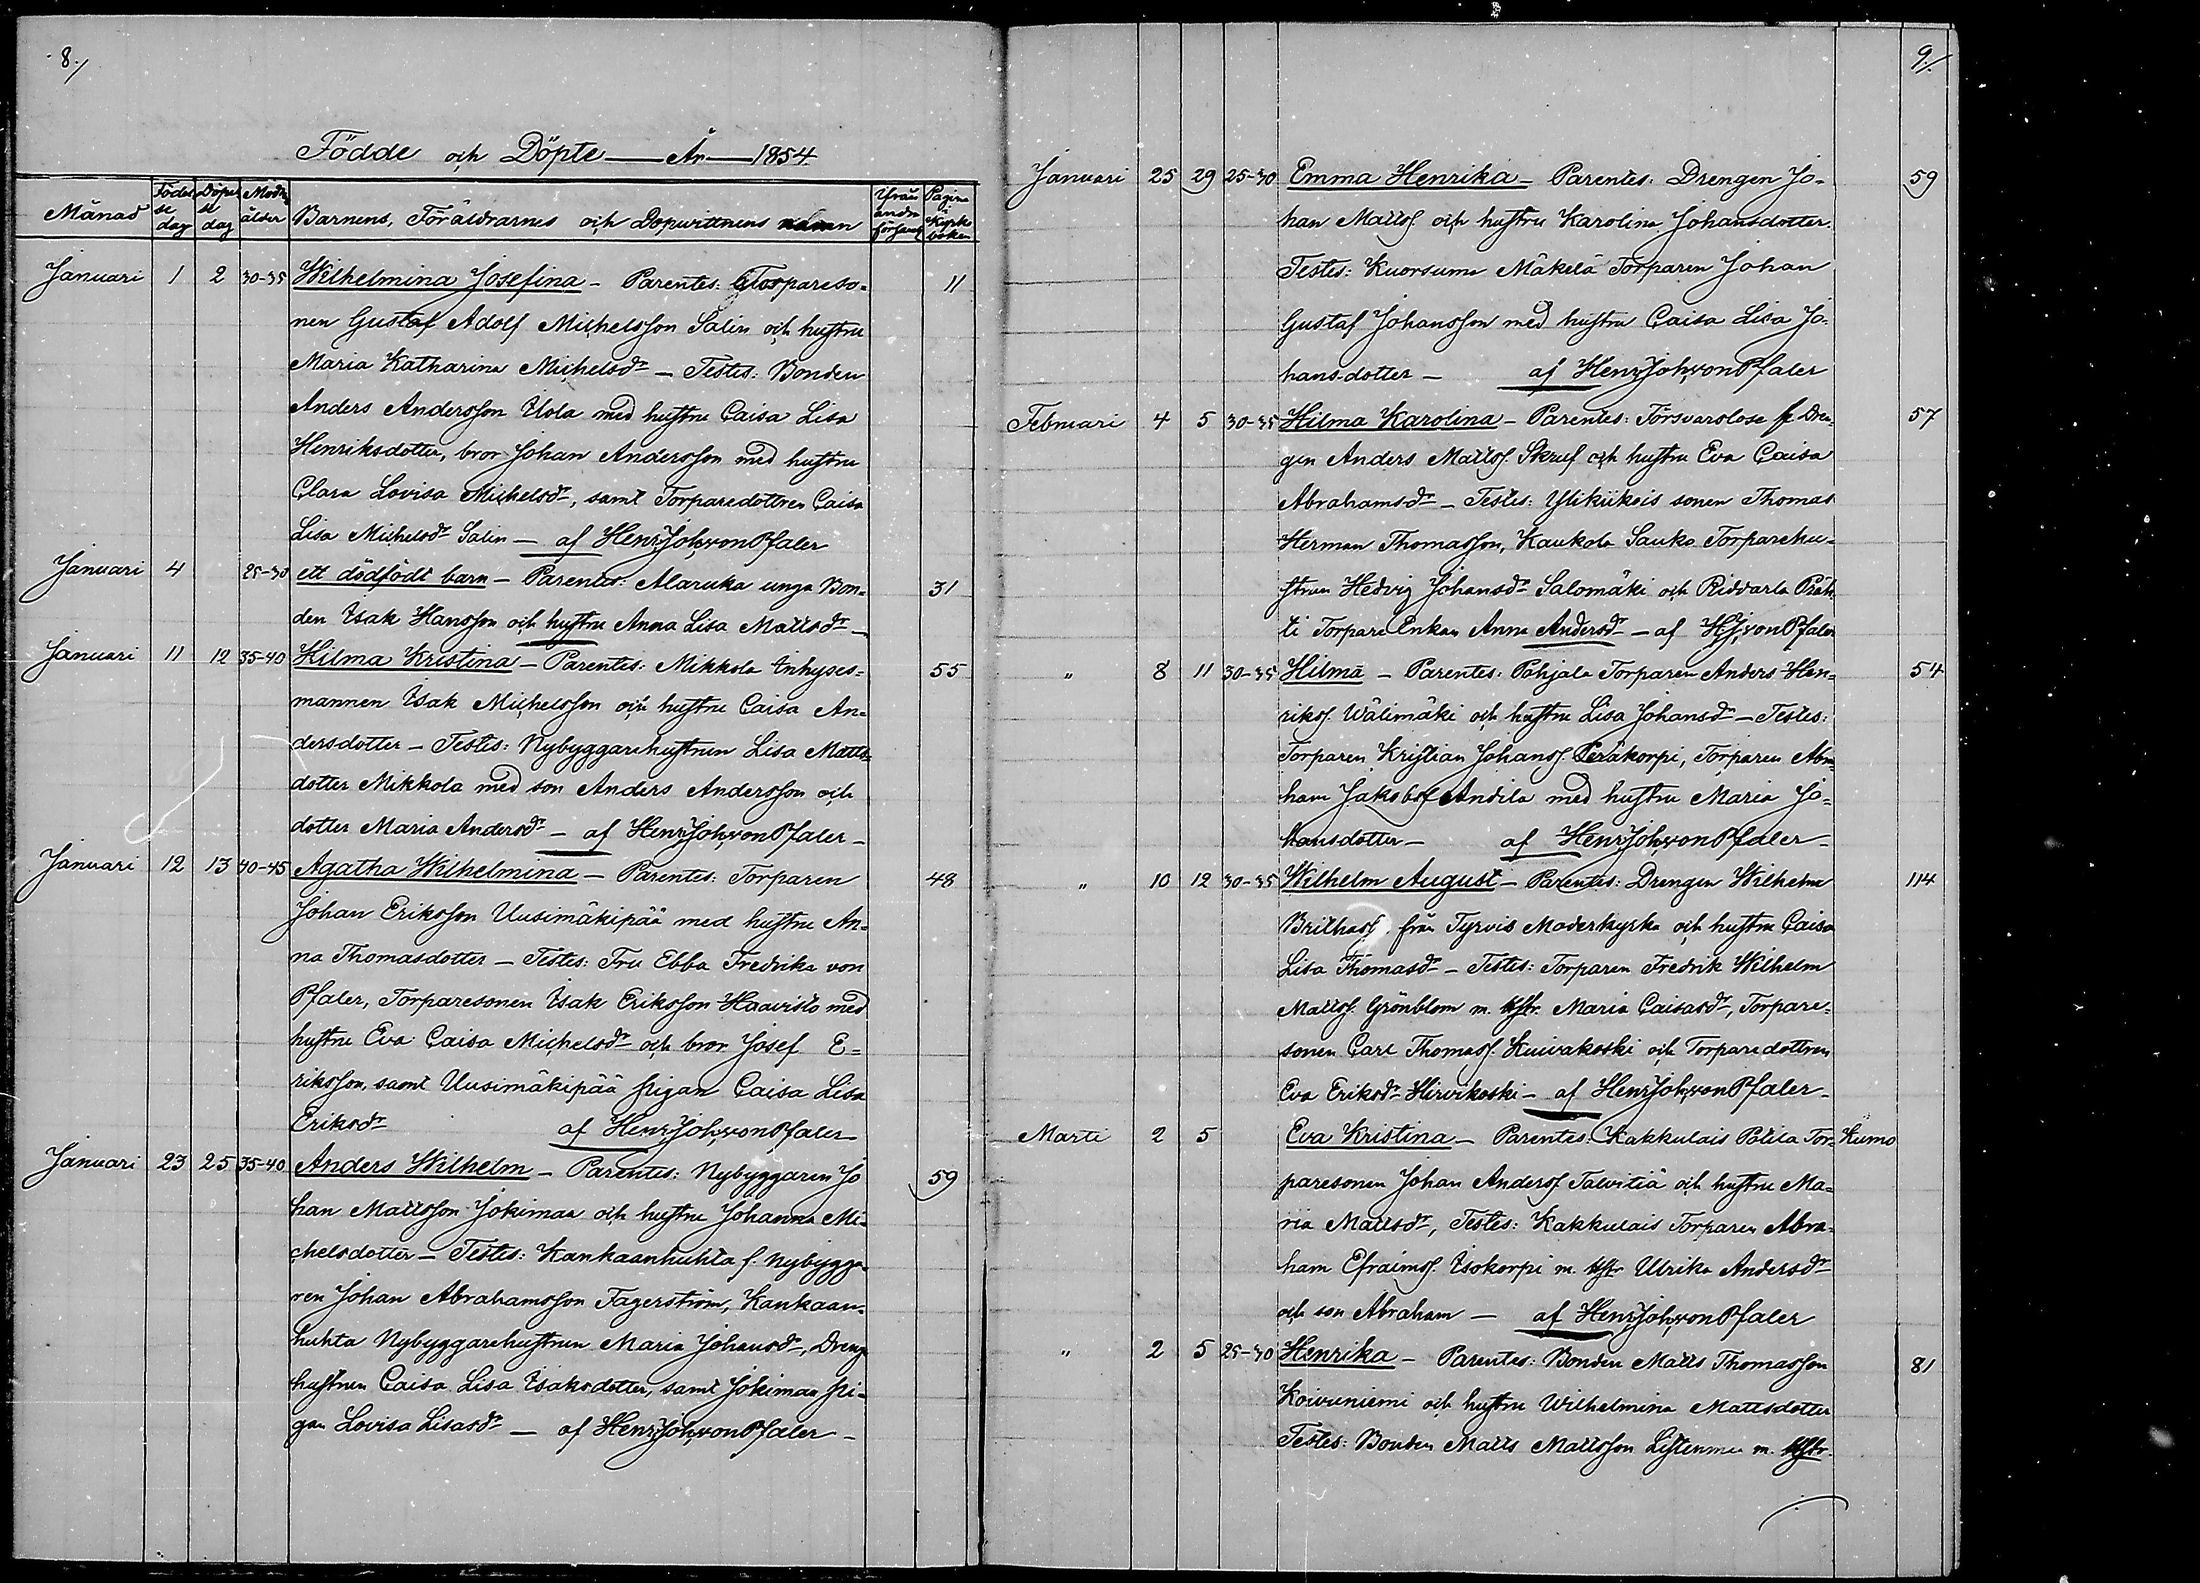 8./
Födde och Döpte — År — 1854
Månad Födelse dag Döpelse dag Modrs ålder Barnens, Föräldrarnes och Dopwittnens namn Ifrån andra församl Pagina i Kyrkoboken
Januari 1 2 30-35 Wilhelmina Josefina - Parentes: Torpareso= 11
nen Gustaf Adolf Michelsson Salin och hustru
Maria Katharina Michelsdr - Testes: Bonden
Anders Andersson Uola med hustru Caisa Lisa
Henriksdotter, bror Johan Andersson med hustru
Clara Lovisa Michelsdr, samt Torparedottren Caisa
Lisa Michelsdr Salin - af Henr. Joh. von Pfaler
Januari 4 25-30 ett dödfödt barn - Parentes: Alaruka unga Bon= 31
den Isak Hansson och hustru Anna Lisa Mattsdr -
Januari 11 12 35-40 Hilma Kristina - Parentes: Mikkola Inhyses= 55
mannen Isak Michelsson och hustru Caisa An=
dersdotter - Testes: Nybyggarehustrun Lisa Matts
dotter Mikkola med son Anders Andersson och
dotter Maria Andersdr - af Henr. Joh. von Pfaler -
Januari 12 13 40-45 Agatha Wilhelmina - Parentes: Torparen 48
Johan Eriksson Uusimäkipää med hustru An=
na Thomasdotter - Testes: Fru Ebba Fredrika von
Pfaler, Torparesonen Isak Eriksson Haavisto med
hustru Eva Caisa Michelsdr och bror Josef E=
riksson, samt Uusimäkipää pigan Caisa Lisa
Eriksdr af Henr. Joh. von Pfaler -
Januari 23 25 35-40 Anders Wilhelm - Parentes: Nybyggaren Jo 59
han Mattsson Jokimaa och hustru Johanna Mi=
chelsdotter - Testes: Kankaanhuhta f. Nybygga=
ren Johan Abrahamsson Fagerström, Kankaan=
huhta Nybyggarehustrun Maria Johansdr, Dreng
hustrun Caisa Lisa Isaksdotter, samt Jokimaa pi=
gan Lovisa Lisasdr - af Henr. Joh. von Pfaler -
9./
Januari 25 29 25-30 Emma Henrika - Parentes: Drengen Jo= 59
han Mattss. och hustru Karolina Johansdotter.
Testes: Kuorsuma Mäkelä Torparen Johan
Gustaf Johansson med hustru Caisa Lisa Jo=
hans-dotter - af Henr. Joh. von Pfaler
Februari 4 5 30-35 Hilma Karolina - Parentes: Försvarslöse f Dren= 57
gen Anders Mattss. Skruf och hustru Eva Caisa
Abrahamsdr - Testes: Ylikiikois sonen Thomas
Herman Thomasson, Kaukola Sauko Torparehu=
strun Hedvig Johansdr Salomäki och Riddarla
ti Torpare Enkan Anna Andersdr - af H. J. von Pfaler
" 8 11 30-35 Hilma - Parentes: Pohjala Torparen Anders Hen= 54
rikss. Wälimäki och hustru Lisa Johansdr - Testes:
Torparen Kristian Johanss. Peräkorpi, Torparen Abra
ham Jakobss. Andila med hustru Maria Jo=
hansdotter - af Henr. Joh. von Pfaler -
" 10 12 30-35 Wilhelm August - Parentes: Drengen Wilhelm 114
från Tyrvis Moderkyrka och hustru Caisa
Lisa Thomasdr - Testes: Torparen Fredrik Wilhelm
Mattss. Grönblom m. hstr. Maria Caisasdr, Torpare=
sonen Carl Thomass. Kuivakoski och Torparedottren
Eva Eriksdr Hirvikoski - af Henr. Joh. von Pfaler -
Marti 2 5 Eva Kristina - Parentes: Kakkulais Potila Tor= Kumo
paresonen Johan Anderss. Talvitiä och hustru Ma=
ria Mattsdr, Testes: Kakkulais Torparen Abra=
ham Efraimss. Isokorpi m. hstr Ulrika Andersdr
och son Abraham - af Henr. Joh. von Pfaler
" 2 5 25-30 Henrika - Parentes: Bonden Matts Thomasson 81
Koivuniemi och hustru Wilhelmina Mattsdotter
Testes: Bonden Matts Mattsson Listenmaa m. hstr.